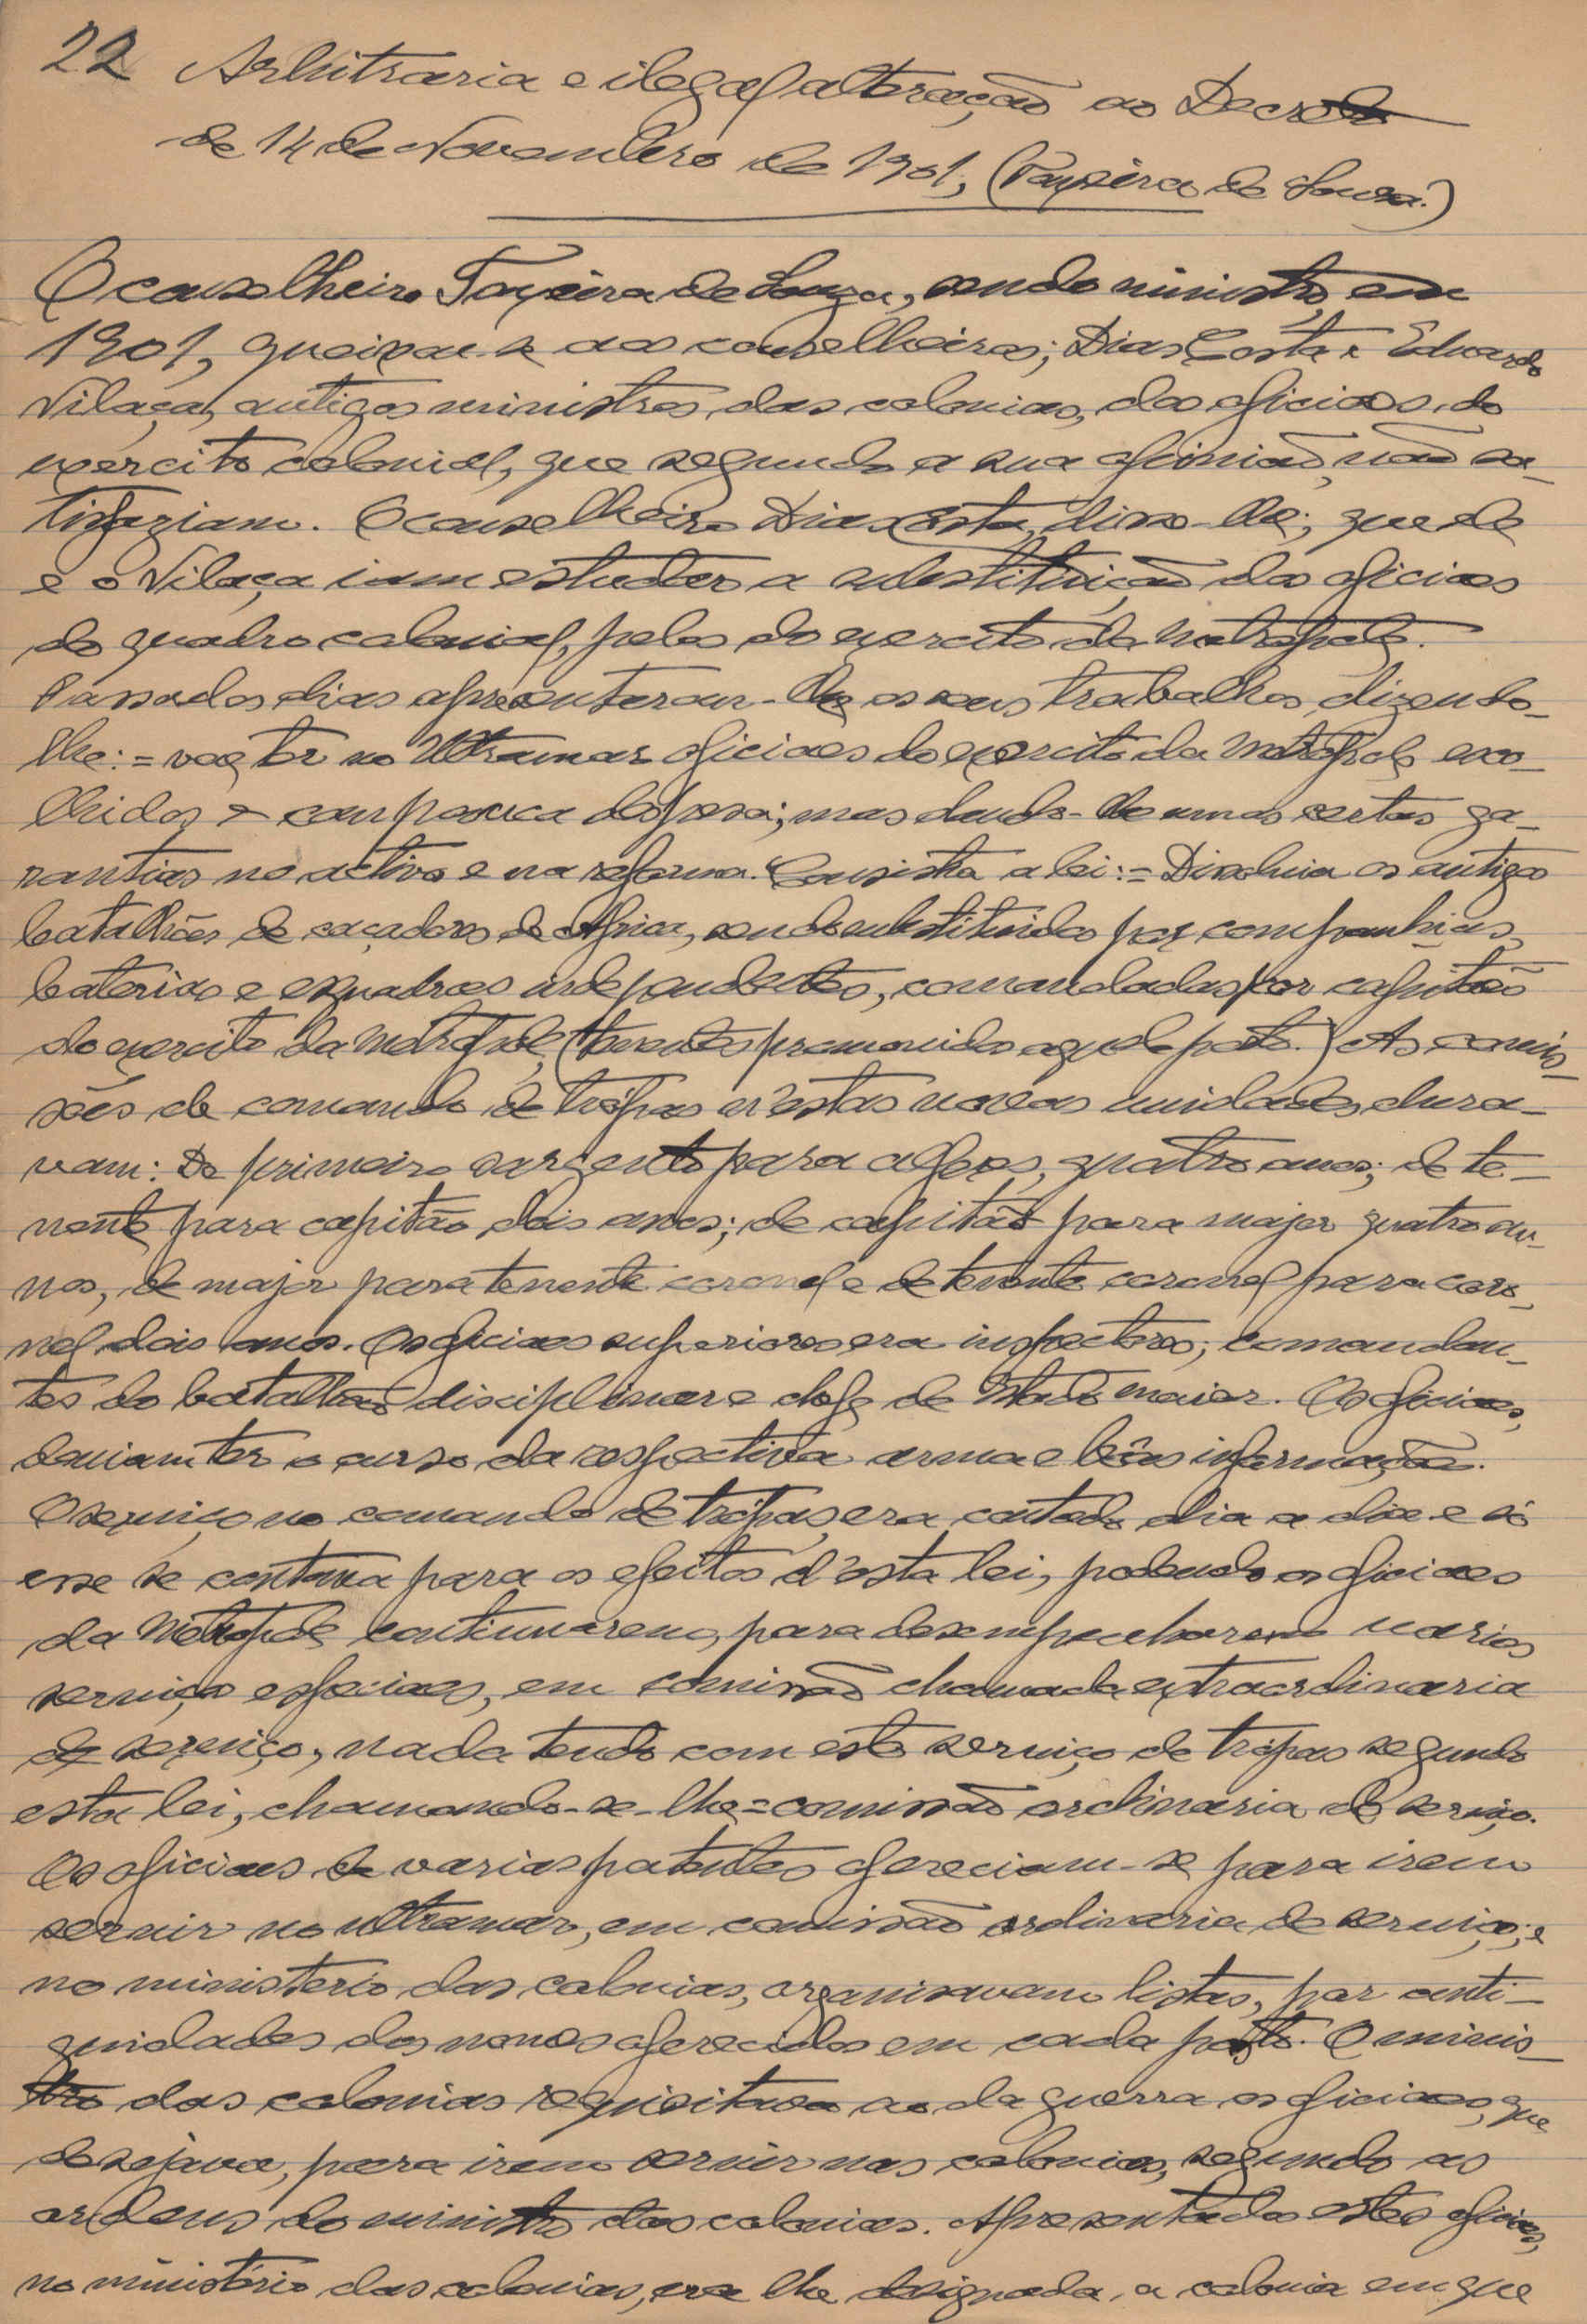 22 Arbitraria e ilegal alteração ao Decreto
de 14 de Novembro de 1901, (Teixeira de Souza.)
O conselheiro Teixeira de Souza, sendo ministro em
1901, queixou-se aos conselheiros; Dias Costa e Eduardo
Vilaça, antigos ministros das colonias, dos oficiaes do
exercito colonial, que segundo a sua opinião, não sa-
tisfaziam. O conselheiro Dias Costa, disse-lhe; que ele
e o Vilaça iam estudar a substituição dos oficiaes
do quadro colonial, pelos do exercito da Metropole.
Passados dias apresentaram-lhe os seus trabalhos, dizendo-
lhe: = vae ter no Ultramar oficiaes do exercito da Metropole esco-
lhidos e com pouca despesa; mas dando-lhe umas certas ga-
rantias no activo e na reforma. Consistia a lei: = Dissolvia os antigos
batalhões de caçadores de Africa, sendo substituidos por companhias,
baterias e esquadrões independentes, comandadas por capitães
do exercito da Metropole, (tenentes promovidos aquele posto.) As comis-
sões de comando de trópas n'estas novas unidades, dura-
vam: De primeiro sargento para alferes, quatro anos; de te-
nente para capitão dois anos; de capitão para major quatro an-
nos, de major para tenente coronel e de tenente coronel para coro-
nel, dois anos. Os oficiaes superiores era inspectores; comandan-
tes do batalhão disciplinar e chefe de Estado maior. Os oficiaes,
deviam ter o curso da respectiva arma e bôas informações.
O serviço no comando de trópas, era contado dia a dia e só
esse se contava para os efeitos d'esta lei, podendo os oficiaes
da Metropole continuarem, para desempenharem varios
serviços especiaes, em comissão chamada extraordinaria
de serviço, nada tendo com este serviço de trópas segundo
esta lei, chamando-se-lhe = comissão ordinaria de serviço.
Os oficiaes de varias patentes ofereciam-se para irem
servir no ultramar, em comissão ordinaria de serviço; e
no ministerio das colonias, organisavam listas, por anti-
guidades dos nomes oferecidos em cada posto. O minis-
tro das colonias requisitava ao da guerra os oficiaes, que
desejava, para irem servir nas colonias, segundo as
ordens do ministro das colonias. Apresentados estes oficiaes,
no ministério das colonias, era lhe designada, a colonia em que